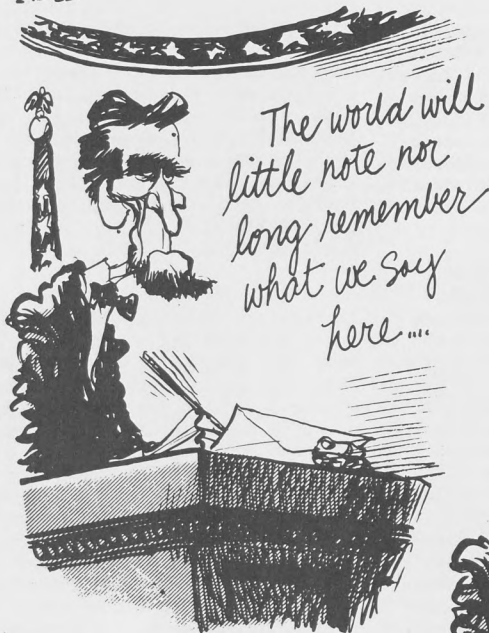 The world will
little note nor
long remember
what we say
here....